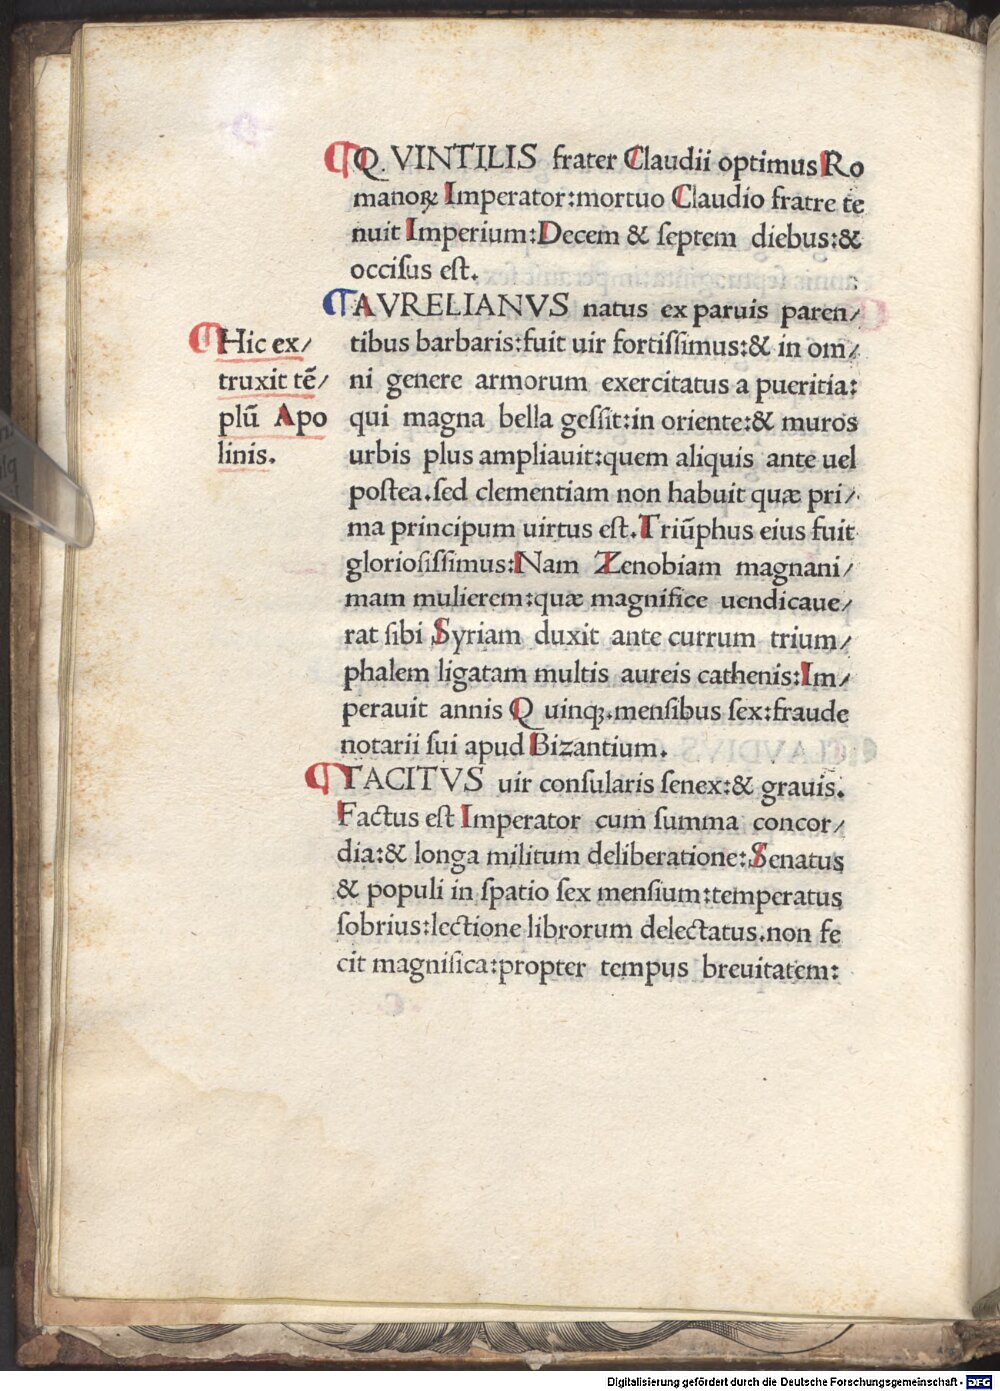 Q. VINTILIS frater Claudii optimus Ro
manoꝝ Imperator:mortuo Claudio fratre te
nuit Imperium:Decem & ſeptem diebus:&
occiſus eſt.
AVRELIANVS natus ex paruis paren/
tibus barbaris:fuit uir fortiſſimus:& in om/
ni genere armorum exercitatus a pueritia:
qui magna bella geſſit:in oriente:& muros
urbis plus ampliauit:quem aliquis ante uel
poſtea.ſed clementiam non habuit quæ pri/
ma principum uirtus eſt.Triūphus eius fuit
glorioſiſſimus:Nam Zenobiam magnani/
mam mulierem:quæ magnifice uendicaue/
rat ſibi Syriam duxit ante currum trium/
phalem ligatam multis aureis cathenis:Im/
perauit annis Q uinqꝫ.menſibus ſex:fraude
notarii ſui apud Bizantium.
TACITVS uir conſularis ſenex:& grauis.
Factus eſt Imperator cum ſumma concor/
dia:& longa militum deliberatione:Senatus
& populi in ſpatio ſex menſium:temperatus
ſobrius:lectione librorum delectatus.non fe
cit magnifica:propter tempus breuitatem:
Hic ex/
truxit tē/
plū Apo
linis.
Digitalisierung gefördert durch die Deutsche Forschungsgemeinschaft - DFG